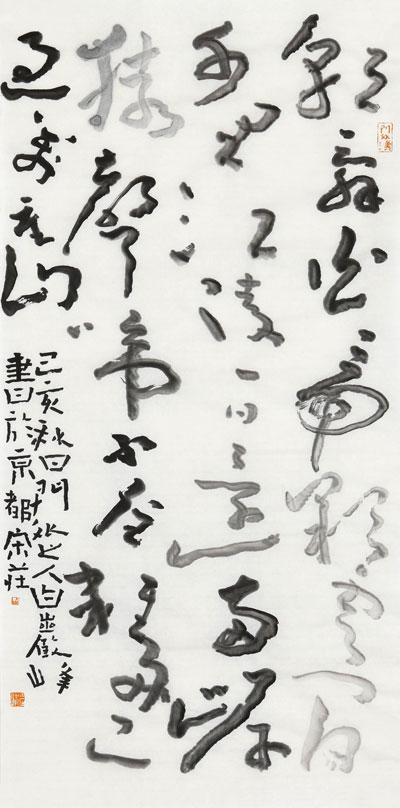 朝辭白帝彩雲間
千里江陵一日還兩岸
猿聲啼不住輕舟已
過萬重山
己亥秋日門外人白
書於京都宋莊